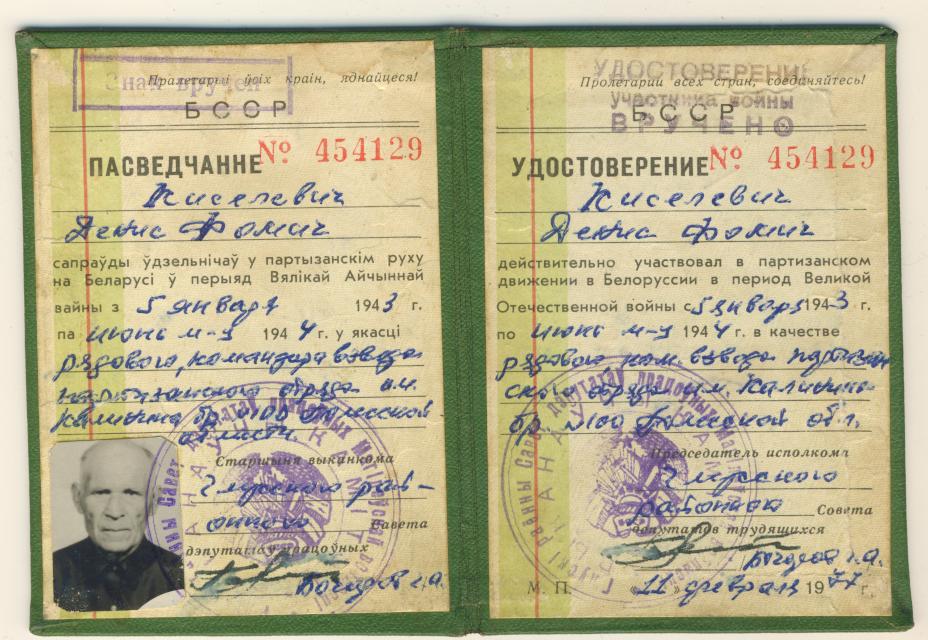 Знак вручен
Пралетарыі ўсіх краін, яднайцеся!
БССР
ПАСВЕДЧАННЕ № 454129
Киселевич
Денис Фомич
сапраўды ўдзельнічаў у партызанскім руху
на Беларусі ў перыяд Вялікай Айчыннай
вайны з 5 января 1943 г.
па июнь м-ц 1944 г. у якасці
рядового, командира взвода
партизанского отряда им.
Калинина бр. №100 Полесской
области.
Старшыня выканкома
Глусского рай-
онного Савета
дэпутатаў працоўных
УДОСТОВЕРЕНИЕ
участника войны
ВРУЧЕНО
Пролетарии всех стран, соединяйтесь!
БССР
УДОСТОВЕРЕНИЕ № 454129
Киселевич
Денис Фомич
действительно участвовал в партизанском
движении в Белоруссии в период Великой
Отечественной войны с 5 января 1943 г.
по июнь м-ц 1944 г. в качестве
рядового, ком. взвода партизан
ского отряда им. Калинина
бр. №100 Полесской обл.
Председатель исполкома
Глусского
районного Совета
депутатов трудящихся
М. П. „11" февраля 1977 г.